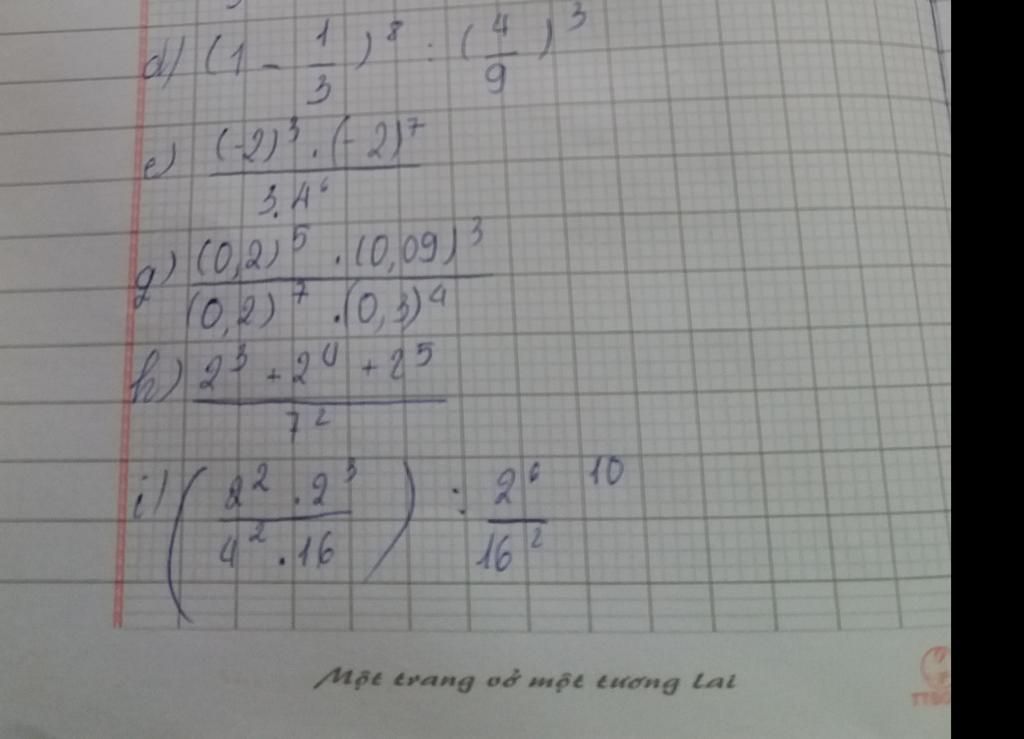 d) (1 - 1/3)^8 : (4/9)^3
e) ((-2)^3 . (-2)^7)/(3.4^6)
g) ((0,2)^5 . (0,09)^3)/((0,2)^7 . (0,3)^4)
h) (2^3 + 2^4 + 2^5)/(7^2)
i) ((2^2 . 2^3)/(4^2 . 16)) : (2^6)/(16^2) 10
Một trang vở một tương lai